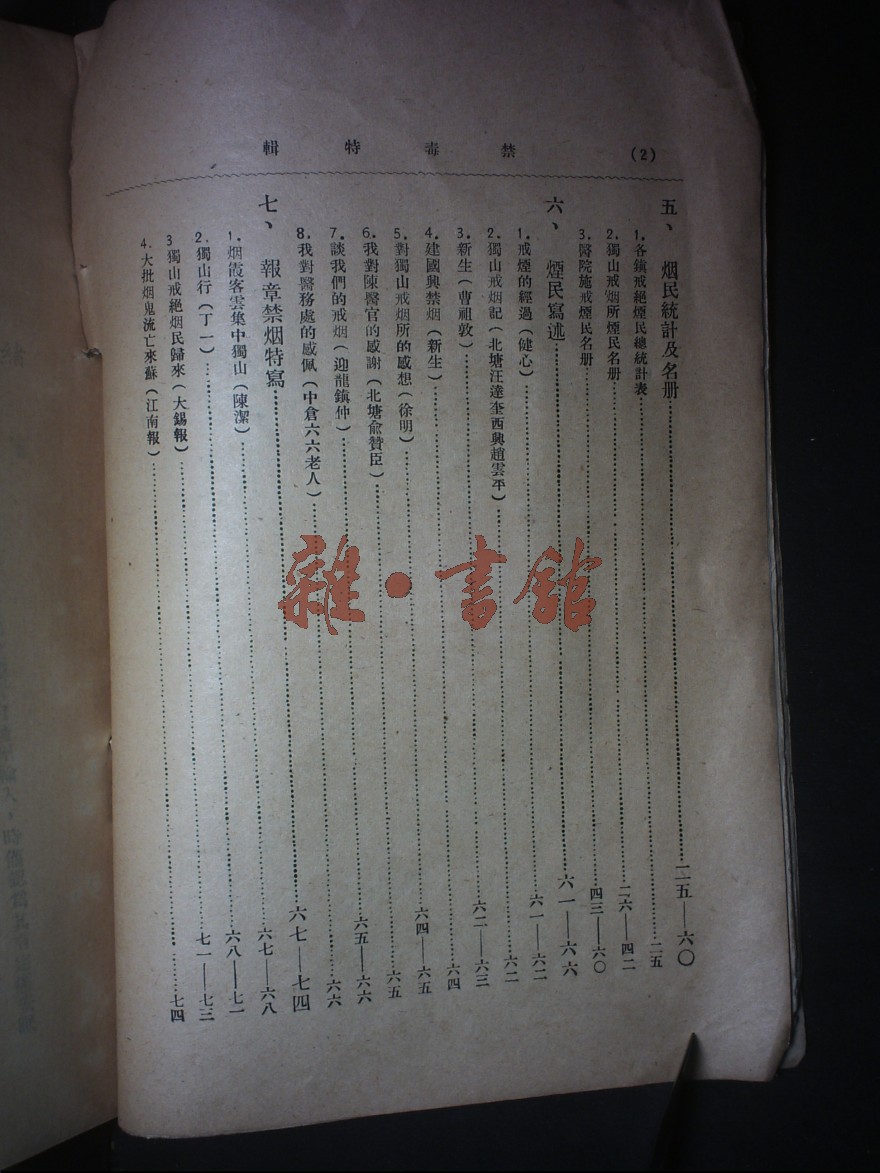 (2) 禁毒特輯
五、烟民統計及名册……二五—六〇
1.各鎮戒絕煙民總統計表……二五
2.獨山戒烟所煙民名册……二六—四二
3.醫院施戒煙民名册……四三—六〇
六、煙民寫述……六一—六六
1.戒煙的經過（健心）……六一—六二
2.獨山戒烟記（北塘汪達奎西興趙雲平）……六二
3.新生（曹祖敦）……六二—六三
4.建國興禁烟（新生）……六四
5.對獨山戒烟所的感想（徐明）……六四—六五
6.我對陳醫官的感謝（北塘俞贊臣）……六五
7.談我們的戒烟（迎龍鎮仲）……六五—六六
8.我對醫務處的感佩（中倉六六老人）……六六
七、報章禁烟特寫……六七—七四
1.烟霞客雲集中獨山（陳潔）……六七—六八
2.獨山行（丁一）……六八—七一
3獨山戒絕烟民歸來（大錫報）……七一—七三
4.大批烟鬼流亡來蘇（江南報）……七四
雜·書館